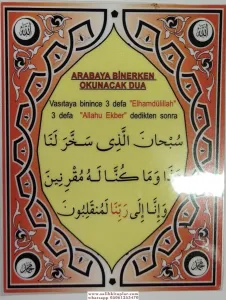 الله
الله
ARABAYA BİNERKEN
OKUNACAK DUA
Vasıtaya binince 3 defa "Elhamdülillah"
3 defa "Allahu Ekber" dedikten sonra
سُبْحَانَ الَّذِى سَخَّرَ لَنَا
هٰذَا وَمَا كُنَّا لَهُ مُقْرِنِينَ
وَإِنَّا إِلَى رَبِّنَا لَمُنْقَلِبُونَ
محمد
محمد